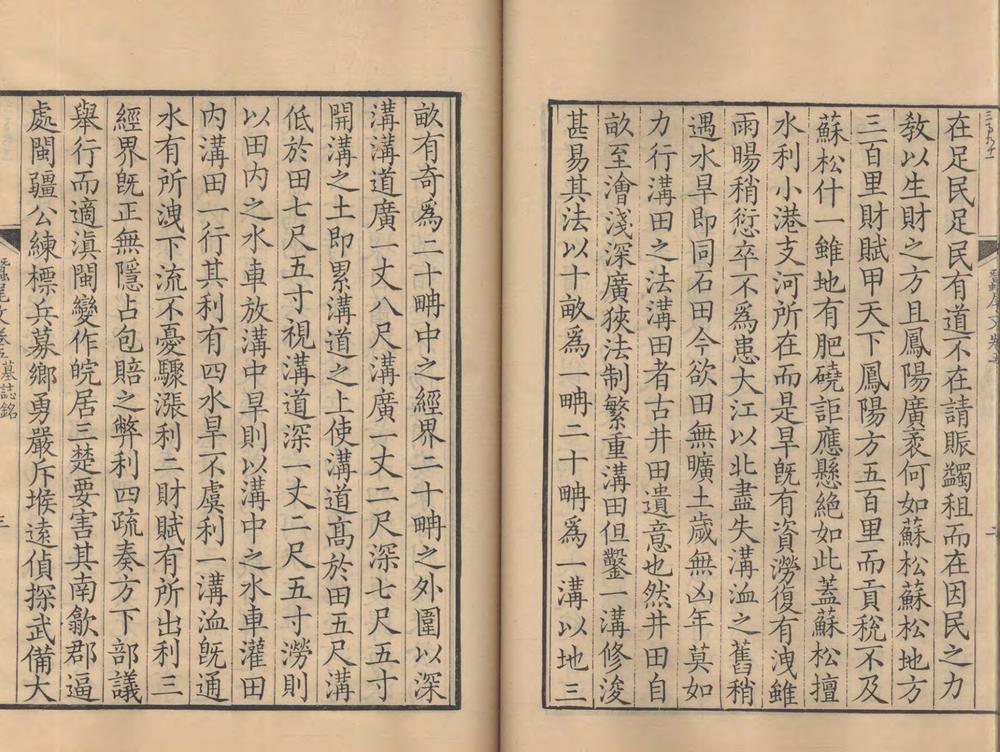 在足民足民有道不在請賑蠲租而在因民之力
教以生財之方且鳳陽廣袤何如蘇松蘇松地方
三百里財賦甲天下鳳陽方五百里而貢稅不及
蘇松什一雖地有肥磽詎應懸絕如此蓋蘇松擅
水利小港支河所在而是旱旣有資澇復有洩雖
雨暘稍愆卒不爲患大江以北盡失溝洫之舊稍
遇水旱即同石田今欲田無曠土歲無凶年莫如
力行溝田之法溝田者古井田遺意也然井田自
畝至澮淺深廣狹法制繁重溝田但鑿一溝修浚
甚易其法以十畝爲一㽗二十㽗爲一溝以地三
畝有奇爲二十㽗中之經界二十㽗之外圍以深
溝溝道廣一丈八尺溝廣一丈二尺深七尺五寸
開溝之土即累溝道之上使溝道高於田五尺溝
低於田七尺五寸視溝道深一丈二尺五寸澇則
以田內之水車放溝中旱則以溝中之水車灌田
內溝田一行其利有四水旱不虞利一溝洫旣通
水有所洩下流不憂驟漲利二財賦有所出利三
經界旣正無隱占包賠之弊利四疏奏方下部議
舉行而適滇閩變作皖居三楚要害其南歙郡逼
處閩疆公練標兵募鄉勇嚴斥堠遠偵探武備大
蠶尾文卷五墓誌銘
三